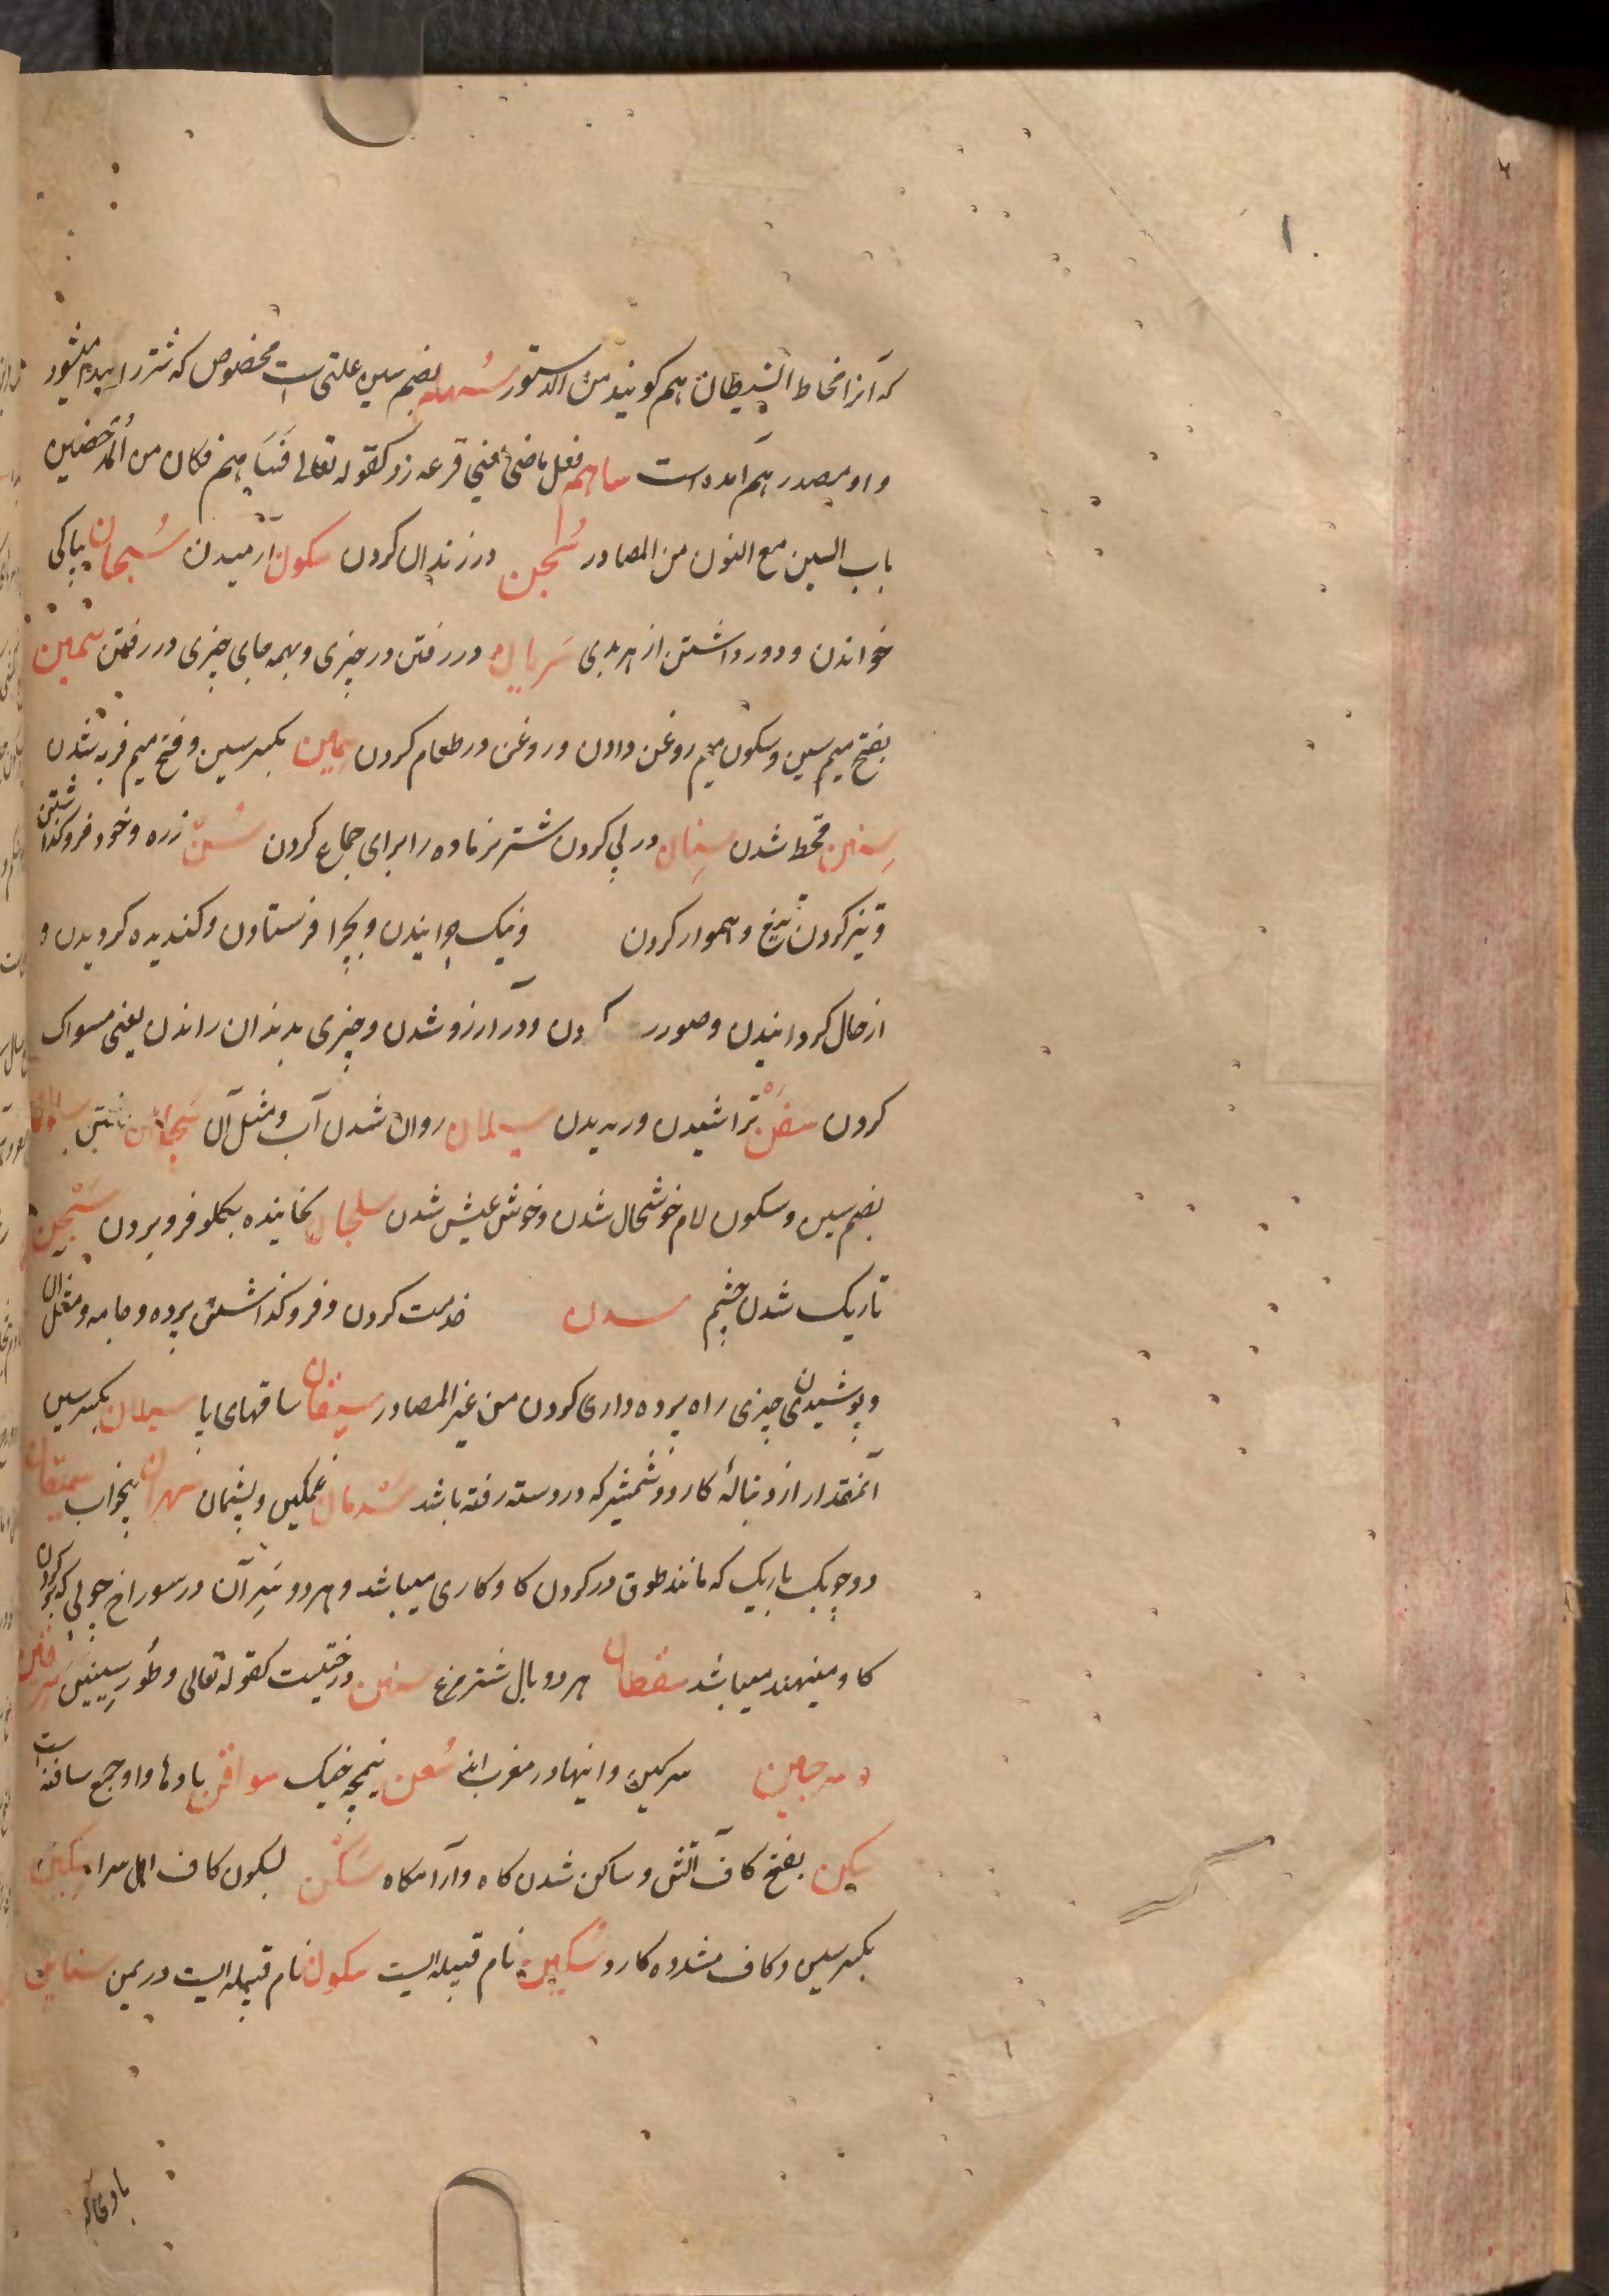 که آنرا مخاط الشیطان هم کویند من الدستور سُهام بضم سین علتی است مخصوص که شتر را پیدا میشود
و او مصدر هم آمده است ساهم فعل ماضی یعنی قرعه زد کقوله تعالی فَسَاهم فکان من المُدحضین
باب السین مع النون من المصادر سَجن در زندان کردن سکون آرمیدن سُبحان بپاکی
خواندن و دور داشتن از هر بدی سَریان در رفتن در چیزی و بهمه جای چیزی در رفتن سَمن
بفتح سین و سکون میم روغن دادن و روغن در طعام کردن سِمن بکسر سین و فتح میم فربه شدن
سِنین قحط شدن سِنان در پی کردن شتر نر ماده را برای جماع کردن سَنّ زره و خود فرو کذاشتن
و تیز کردن تیغ و هموار کردن و نیک چرانیدن و بچرا فرستادن و کندیده کردیدن و
از حال کردانیدن و صورت کردن و در آرزو شدن و چیزی بدندان راندن یعنی مسواک
کردن سَفن تراشیدن و رندیدن سیلان روان شدن آب و مثل آن
بضم سین و سکون لام خوشحال شدن و خوش عیش شدن سلجان نخائیده بکلو فرو بردن
تاریک شدن چشم سدن خدمت کردن و فرو کذاشتن پرده و جامه و مثل آن
و پوشیدن چیزی را و پرده داری کردن من غیر المصادر سیقان ساقهای پا سیلان بکسر سین
آنمقدار از دنبالهٔ کارد و شمشیر که در دسته رفته باشد سَدمان غمکین و پشیمان سهران بیخواب
دو چوبک باریک که مانند طوق در کردن کاو کاری میباشد و هر دو سَر آن در سوراخ چوبی که بر کردن
کاو مینهند میباشد سقطان هر دو بال شتر مرغ سنین درختیست کقوله تعالی و طُور سِینین سرقین
و سرجین سرکین و اینها در مغرب اند سُعن نیمچه خیک سوافن بادها و او جمع سافنه است
سکن بفتح کاف آتش و ساکن شدن کاه و آرامکاه سَکْن بسکون کاف اهل سرا سِکّین
بکسر سین و کاف مشدده کارد سُکین نام قبیله ایست سکون نام قبیله ایست در یمن